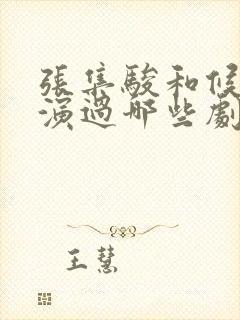 張集駿和候
演過哪些劇
王慧